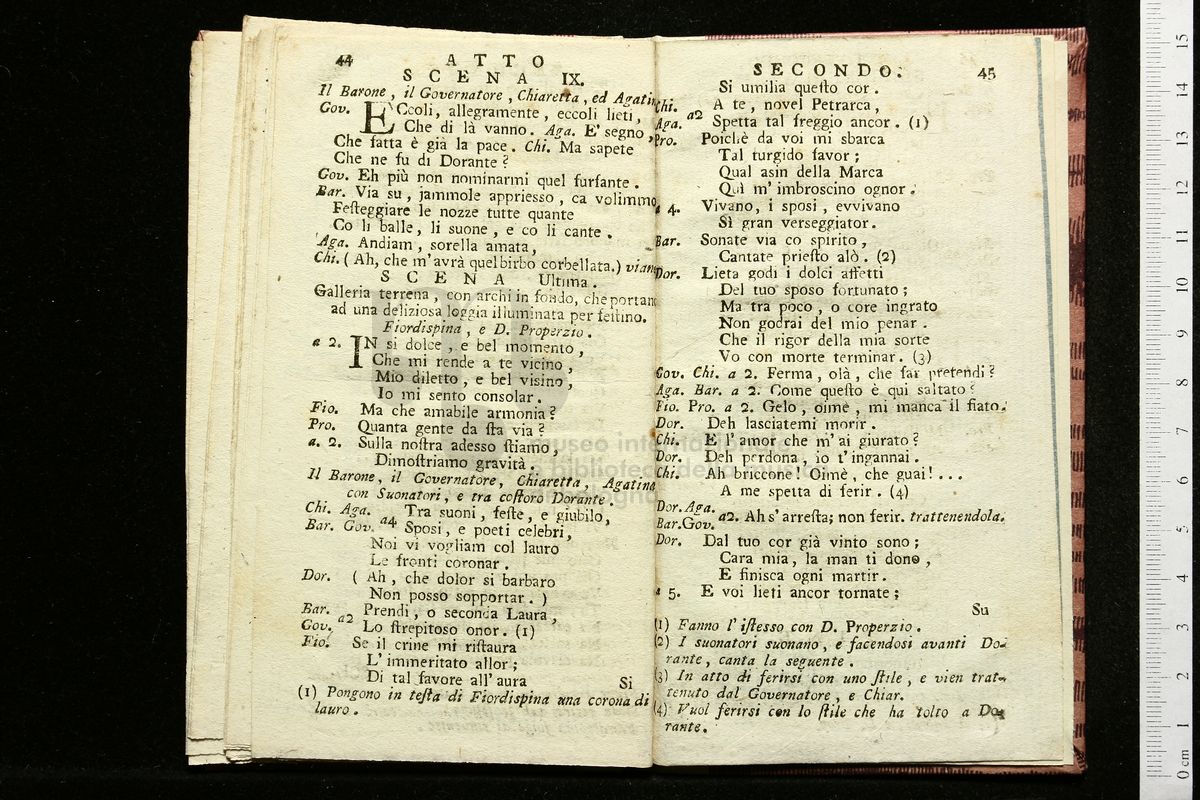 44 ATTO
SCENA IX.
Il Barone, il Governatore, Chiaretta, ed Agatin
Gov. ECcoli, allegramente, eccoli lieti,
Che di là vanno. Aga. E' segno,
Che fatta è già la pace. Chi. Ma sapete
Che ne fu di Dorante?
Gov. Eh più non nominarmi quel furfante.
Bar. Via su, jammole appriesso, ca volimmo
Feſteggiare le nozze tutte quante
Co li balle, li suone, e co li cante.
Aga. Andiam, sorella amata,
Chi. (Ah, che m'avrà quel birbo corbellata.) viano
SCENA Ultima.
Galleria terrena, con archi in fondo, che portano
ad una deliziosa loggia illuminata per feſtino.
Fiordispina, e D. Properzio.
a 2. IN si dolce, e bel momento,
Che mi rende a te vicino,
Mio diletto, e bel visino,
Io mi sento consolar.
Fio. Ma che amabile armonia?
Pro. Quanta gente da ſta via?
a. 2. Sulla noſtra adesso ſtiamo,
Dimoſtriamo gravità.
Il Barone, il Governatore, Chiaretta, Agatina
con Suonatori, e tra coſtoro Dorante.
Chi. Aga. Tra suoni, feſte, e giubilo,
Bar. Gov. a4 Sposi, e poeti celebri,
Noi vi vogliam col lauro
Le fronti coronar.
Dor. (Ah, che dolor si barbaro
Non posso sopportar.)
Bar. Prendi, o seconda Laura,
Gov. a2 Lo ſtrepitoso onor. (1)
Fio. Se il crine mi riſtaura
L'immeritato allor;
Di tal favore all'aura
Si
(1) Pongono in teſta di Fiordispina una corona di
lauro.
SECONDO. 45
Si umilia queſto cor.
Chi. A te, novel Petrarca,
Aga. a2 Spetta tal freggio ancor. (1)
Pro. Poichè da voi mi sbarca
Tal turgido favor;
Qual asin della Marca
Quì m'imbroscino ognor.
a 4. Vivano, i sposi, evvivano
Sì gran verseggiator.
Bar. Sonate via co spirito,
Cantate prieſto alò. (2)
Dor. Lieta godi i dolci affetti
Del tuo sposo fortunato;
Ma tra poco, o core ingrato
Non godrai del mio penar.
Che il rigor della mia sorte
Vo con morte terminar. (3)
Gov. Chi. a 2. Ferma, olà, che far pretendi?
Aga. Bar. a 2. Come queſto è qui saltato?
Fio. Pro. a 2. Gelo, oimè, mi manca il fiato.
Dor. Deh lasciatemi morir.
Chi. E l'amor che m'ai giurato?
Dor. Deh perdona, io t'ingannai.
Chi. Ah briccone! Oimè, che guai!...
A me spetta di ferir. (4)
Dor. Aga.
Bar. Gov. a2. Ah s'arreſta; non ferir. trattenendola.
Dor. Dal tuo cor già vinto sono;
Cara mia, la man ti dono,
E finisca ogni martir.
a 5. E voi lieti ancor tornate;
Su
(1) Fanno l'iſtesso con D. Properzio.
(2) I suonatori suonano, e facendosi avanti Do-
rante, canta la seguente.
(3) In atto di ferirsi con uno ſtile, e vien trat-
tenuto dal Governatore, e Chiar.
(4) Vuol ferirsi con lo ſtile che ha tolto a Do-
rante.
museo internazionale
e biblioteca della musica
bologna
0 cm 1 2 3 4 5 6 7 8 9 10 11 12 13 14 15